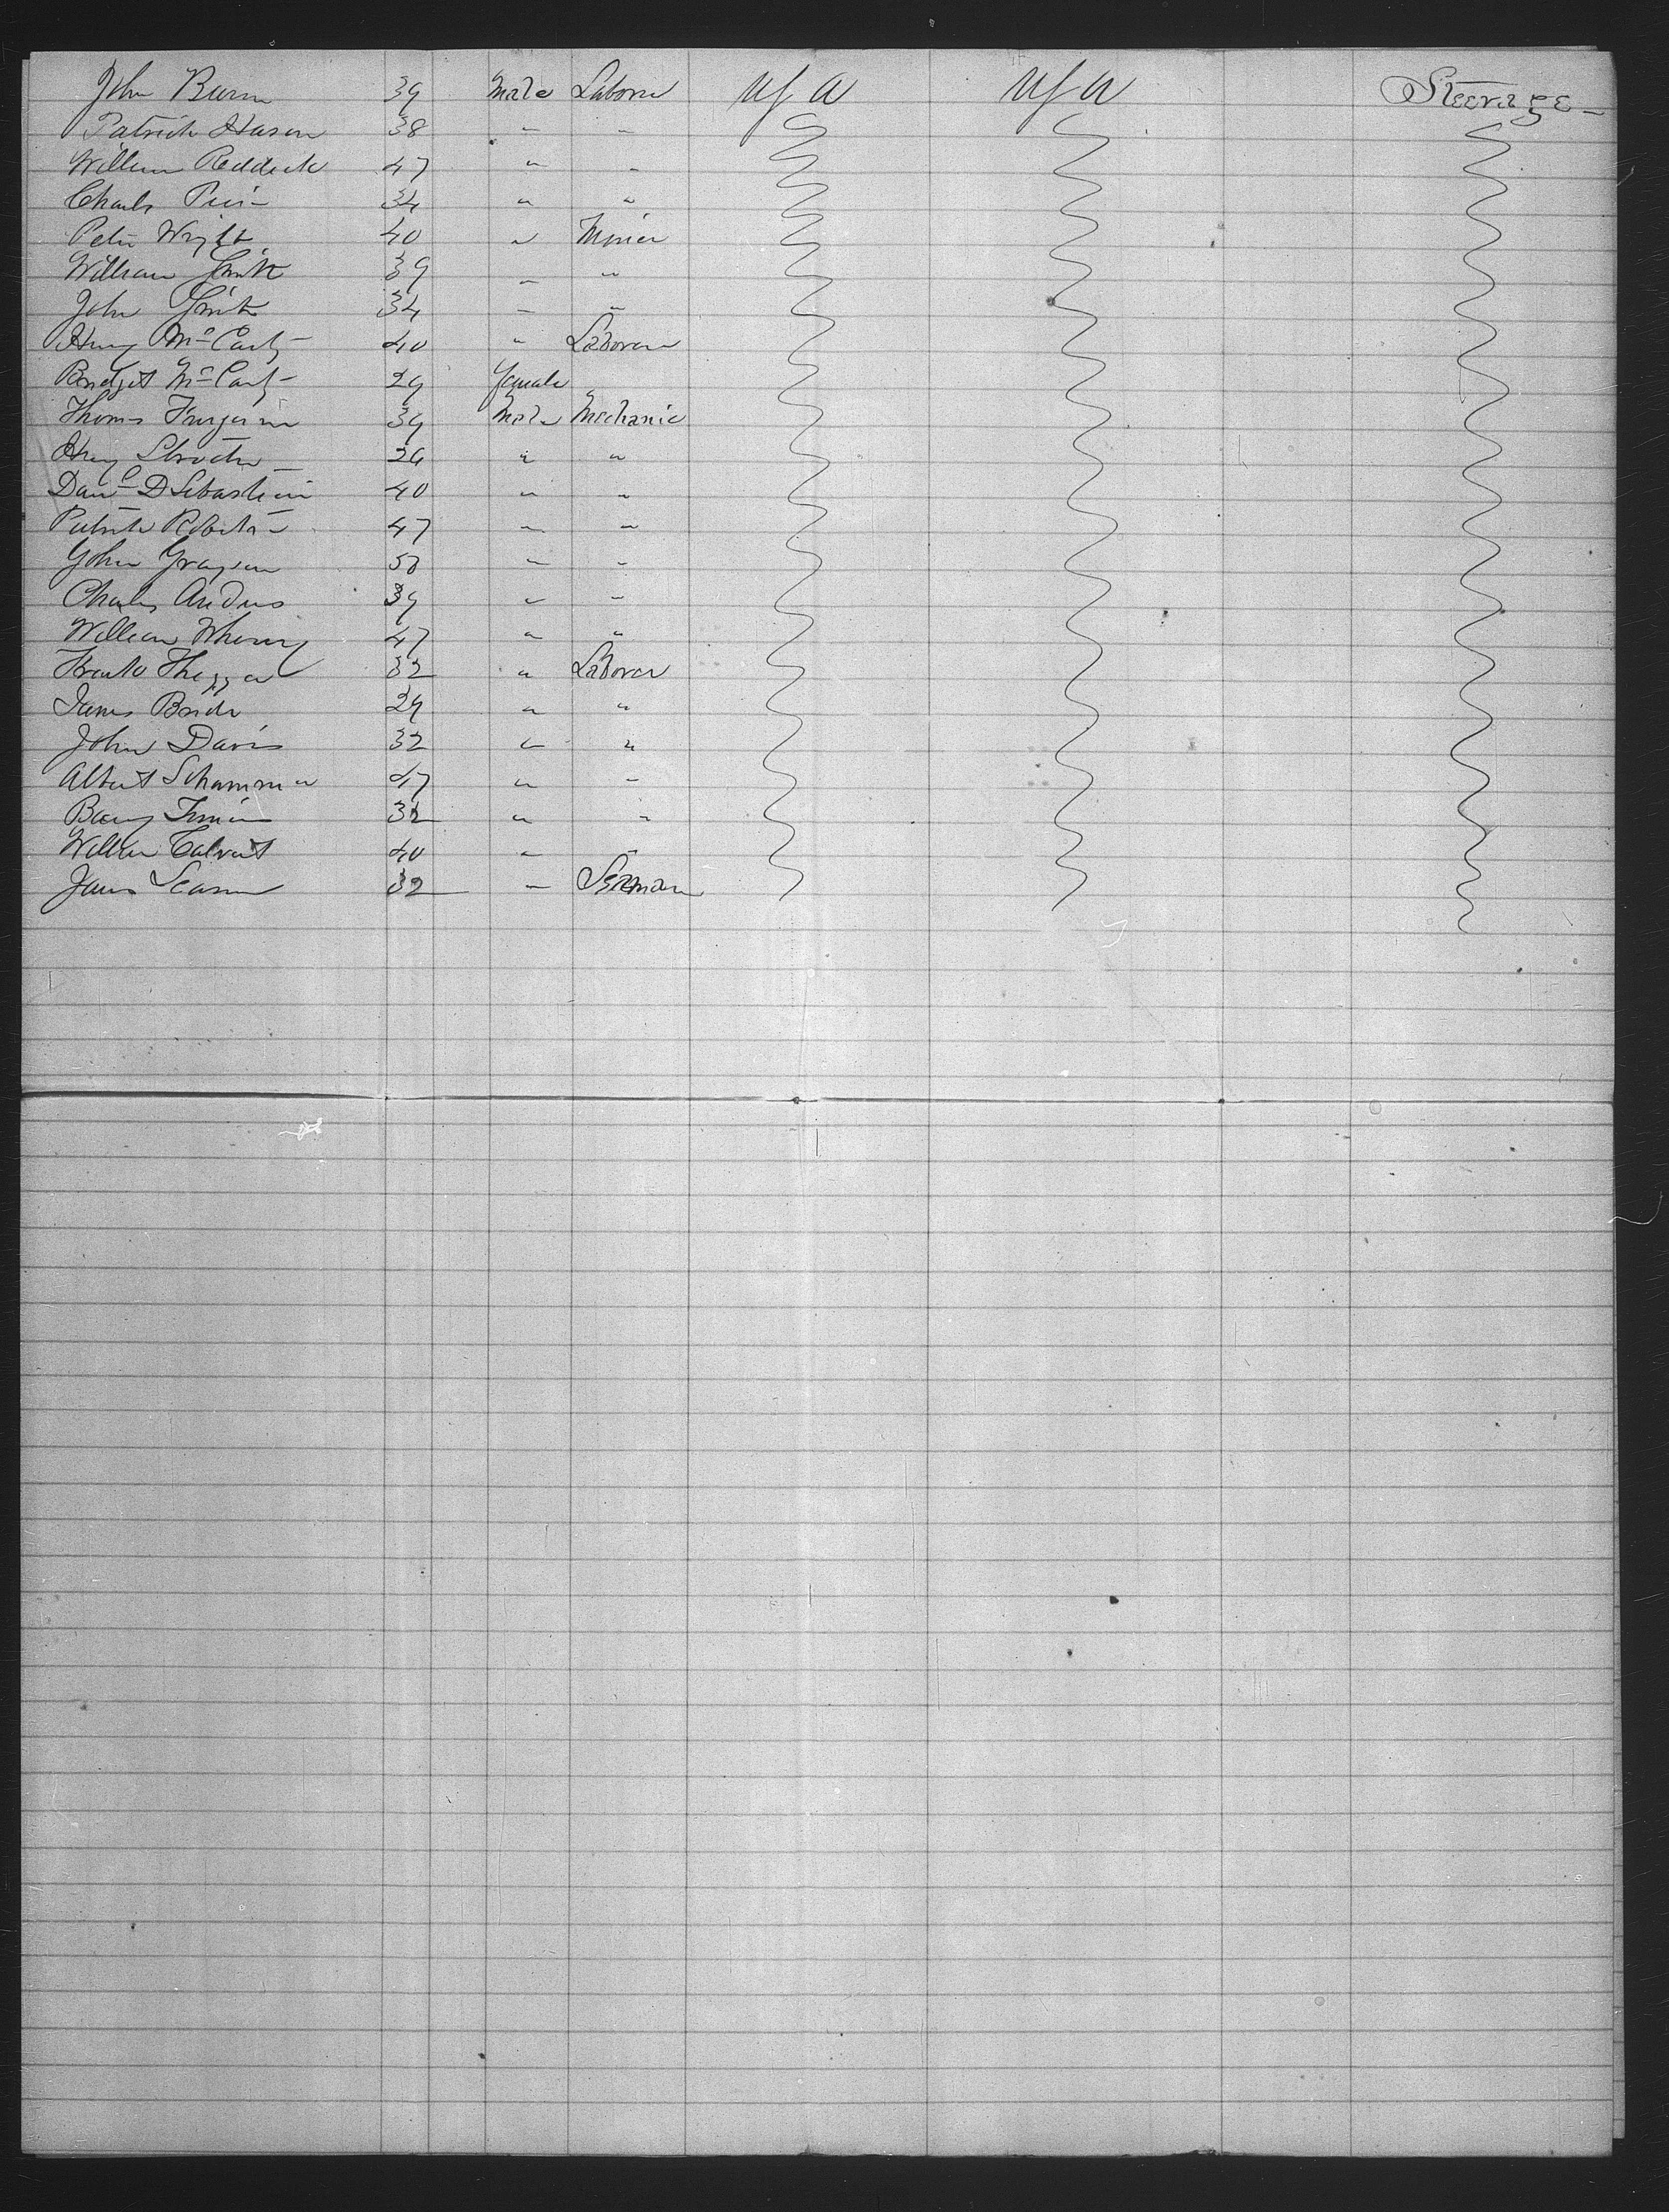 John Burn 39 Male Laborer U S A U S A Steerage
Patrick Hason 38 " "
William Reddick 47 " "
Charls 34 " "
Peter Wright 40 " Minier
William Smith 39 " "
John Smith 34 " "
Henry McCarty 40 " Laborer
Bridget McCarty 29 female
Thomas Furgerson 39 Male Mechanic
Henry 29 " "
Danl D Sebastien 40 " "
Patrick 47 " "
John Grayson 50 " "
Charles Andrus 39 " "
William Wherry 47 " "
Frank 32 " Laborer
James Bride 29 " "
John Davis 32 " "
Albert Schammer 47 " "
32 " "
William Calvert 40 " "
James 32 " Seaman